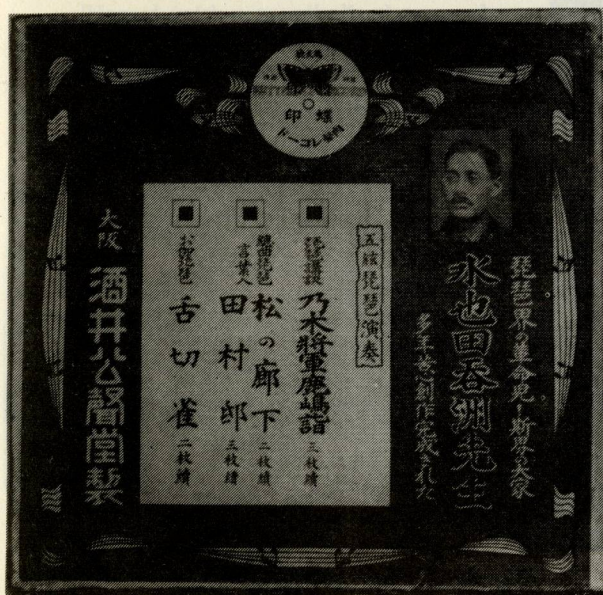 蝶印
内外レコード
琵琶界の革命児!斯界の大家
水也田呑洲先生
多年苦心創作完成された
五絃琵琶演奏
琵琶講談 乃木將軍鹿嶋詣 三枚續
松の廊下 二枚續
言葉入 田村邸 三枚續
お伽琵琶 舌切雀 二枚續
大阪 酒井公聲堂製